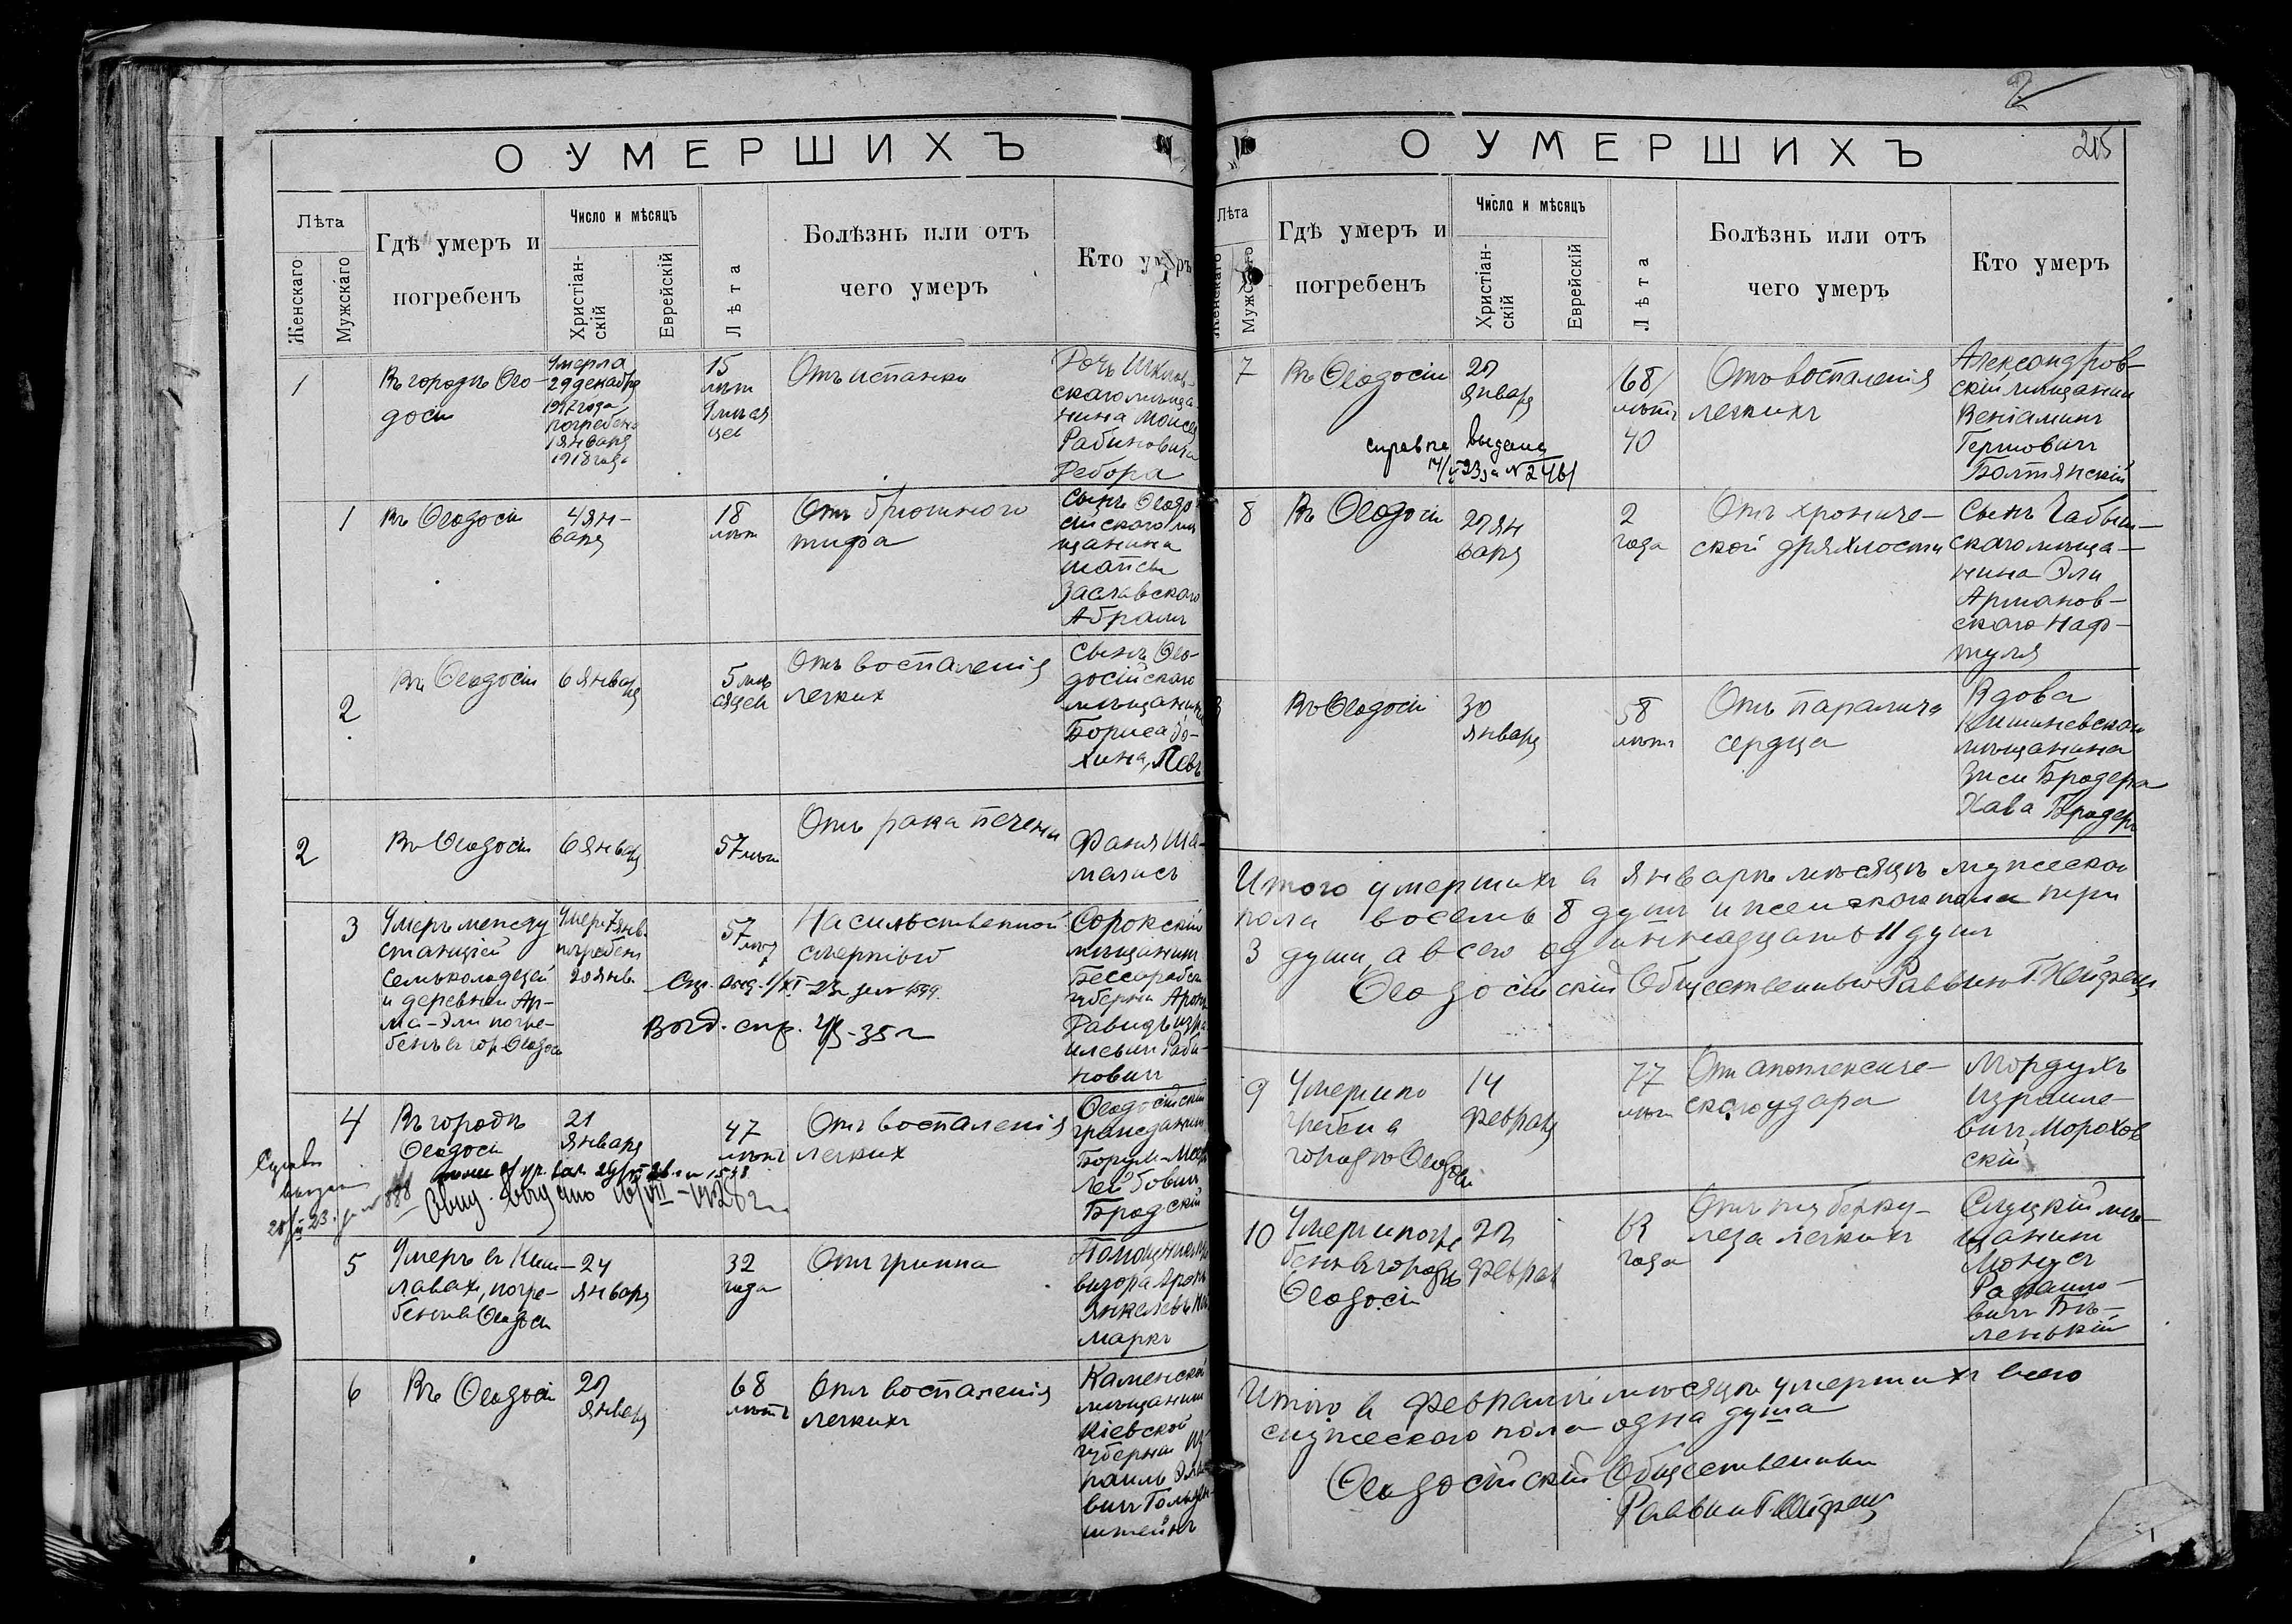 О УМЕРШИХЪ
Лѣта
Женскаго
Мужскаго
Гдѣ умеръ и
погребенъ
Число и мѣсяцъ
Христіан-
скій
Еврейскій
Лѣта
Болѣзнь или отъ
чего умеръ
Кто умеръ
1
Въ городѣ Ѳео-
досіи
Умерла
29 декабря
1917 года
погребена
1 января
1918 года
15
лѣт
мѣся
цев
Отъ испанки
Дочь Шклов-
скаго мѣща-
нина Моисея
Рабиновича
Дебора
1
Въ Ѳеодосіи
4 ян-
варя
18
лѣт
Отъ брюшного
тифа
Сынъ Ѳеодо
сійскаго мѣ
щанина
Заславскаго
Абрамъ
2
Въ Ѳеодосіи
6 января
5 мѣ
сяцев
Отъ воспаленія
легких
Сынъ Ѳео-
досійскаго
мѣщанина
Бориса
хина, Левъ
2
Въ Ѳеодосіи
6 января
57 лѣт
Отъ рака печени
Фаня Ша-
мались
3
Умеръ между
станціей
Семьколодезей
и деревней Ар-
ма-Эли погре-
бенъ в гор Ѳеодосіи
Умер 7 янв.
погребен
20 янв.
57
лѣт
Насильственной
смертью
Сорокскій
мѣщанинъ
Бессарабск
губерніи Аронъ
Давидъ Изра
илевич Раби-
нович
Выд. спр. 35 г
4
Въ городѣ
Ѳеодосіи
21
января
47
лѣтъ
Отъ воспаленія
легких
Ѳеодосійскій
гражданин
Борух-Меер
Лейбович
Бродскій
5
Умеръ в Киш-
лавах, погре-
бенъ в Ѳеодосіи
24
января
32
года
Отъ гриппа
Аронъ
Янкелевъ
маркъ
6
Въ Ѳеодосіи
29
января
68
лѣтъ
Отъ воспаленія
легкихъ
Каменскій
мѣщанин
Кіевской
губерніи Из
раиль
вич Гольден-
штейнъ
2
О УМЕРШИХЪ
215
Лѣта
Женскаго
Мужскаго
Гдѣ умеръ и
погребенъ
Число и мѣсяцъ
Христіан-
скій
Еврейскій
Лѣта
Болѣзнь или отъ
чего умеръ
Кто умеръ
7
Въ Ѳеодосіи
29
января
68
лѣтъ
40
Отъ воспаленія
легкихъ
Александров-
скій мѣщанин
Веніаминъ
Гершович
Болтянскій
справка выдана
8
Въ Ѳеодосіи
29 ян
варя
2
года
Отъ хрониче-
ской дряхлости
Сынъ
скаго мѣща-
нина Эли
Армановскаго Наф-
туля
Въ Ѳеодосіи
30
января
58
лѣтъ
Отъ паралича
сердца
Вдова
Кишиневскаго
мѣщанина
Зиси Бродера
Хава Бродеръ
Итого умершихъ в январѣ мѣсяцѣ мужеского
пола восемь 8 душъ и женского пола три
3 души, а всего одиннадцать 11 душ
Ѳеодосійскій Общественный Раввин
9
Умер и по
гребен в
городѣ Ѳеодосіи
14
февраля
77
лѣт
Отъ апоплексиче-
скаго удара
Мордухъ
Израиле-
вич Морохов
скій
10
Умер и погре
бен в городѣ
Ѳеодосіи
22
февраля
года
Отъ туберку-
леза легкихъ
Слуцкій мѣ-
щанин
Рафаило-
вич Бѣ-
ленькій
Итого в февралѣ мѣсяцѣ умерших всего
мужеского пола одна душа
Ѳеодосійскій Общественный
Раввин